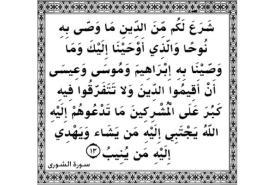 شَرَعَ لَكُم مِّنَ الدِّينِ مَا وَصَّى بِهِ
نُوحًا وَالَّذِي أَوْحَيْنَا إِلَيْكَ وَمَا
وَصَّيْنَا بِهِ إِبْرَاهِيمَ وَمُوسَى وَعِيسَى
أَنْ أَقِيمُوا الدِّينَ وَلَا تَتَفَرَّقُوا فِيهِ
كَبُرَ عَلَى الْمُشْرِكِينَ مَا تَدْعُوهُمْ إِلَيْهِ
اللَّهُ يَجْتَبِي إِلَيْهِ مَن يَشَاء وَيَهْدِي
إِلَيْهِ مَن يُنِيبُ ١٣
سورة الشورى